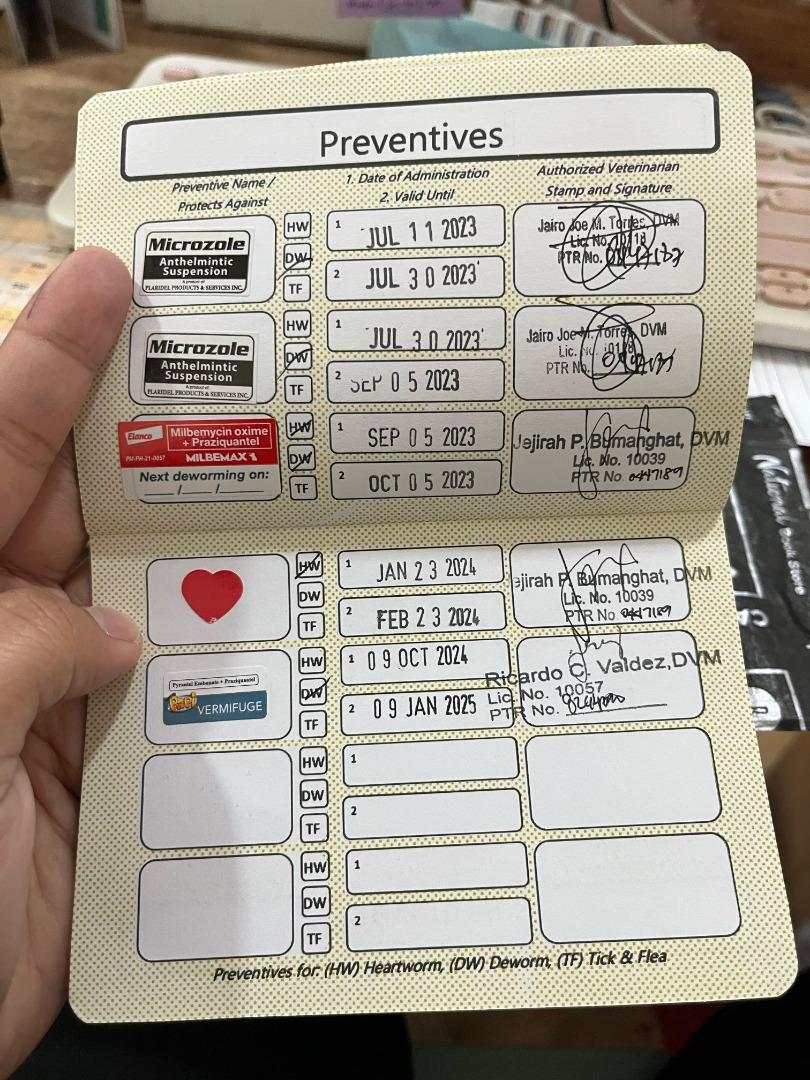 Preventives
Preventive Name /
Protects Against
1. Date of Administration
2. Valid Until
Authorized Veterinarian
Stamp and Signature
Microzole
Anthelmintic
Suspension
A product of:
PLARIDEL PRODUCTS & SERVICES INC.
HW
DW
TF
1 JUL 11 2023
2 JUL 30 2023
Jairo Joe M. Torres, DVM
Lic. No. 10118
PTR No.
Microzole
Anthelmintic
Suspension
A product of:
PLARIDEL PRODUCTS & SERVICES INC.
HW
DW
TF
1 JUL 30 2023
2 SEP 05 2023
Jairo Joe M. Torres, DVM
Lic. No. 10118
PTR No.
Elanco
Milbemycin oxime
+ Praziquantel
MILBEMAX
Next deworming on:
__/__/__
HW
DW
TF
1 SEP 05 2023
2 OCT 05 2023
Jejirah P. Bumanghat, DVM
Lic. No. 10039
PTR No 0447189
HW
DW
TF
1 JAN 23 2024
2 FEB 23 2024
ejirah P. Bumanghat, DVM
Lic. No. 10039
PTR No 0447189
Pyrantel Embonate + Praziquantel
VERMIFUGE
HW
DW
TF
1 09 OCT 2024
2 09 JAN 2025
Ricardo C. Valdez, DVM
Lic. No. 10057
PTR No.
HW
DW
TF
1
2
HW
DW
TF
1
2
Preventives for: (HW) Heartworm, (DW) Deworm, (TF) Tick & Flea
National Book Store